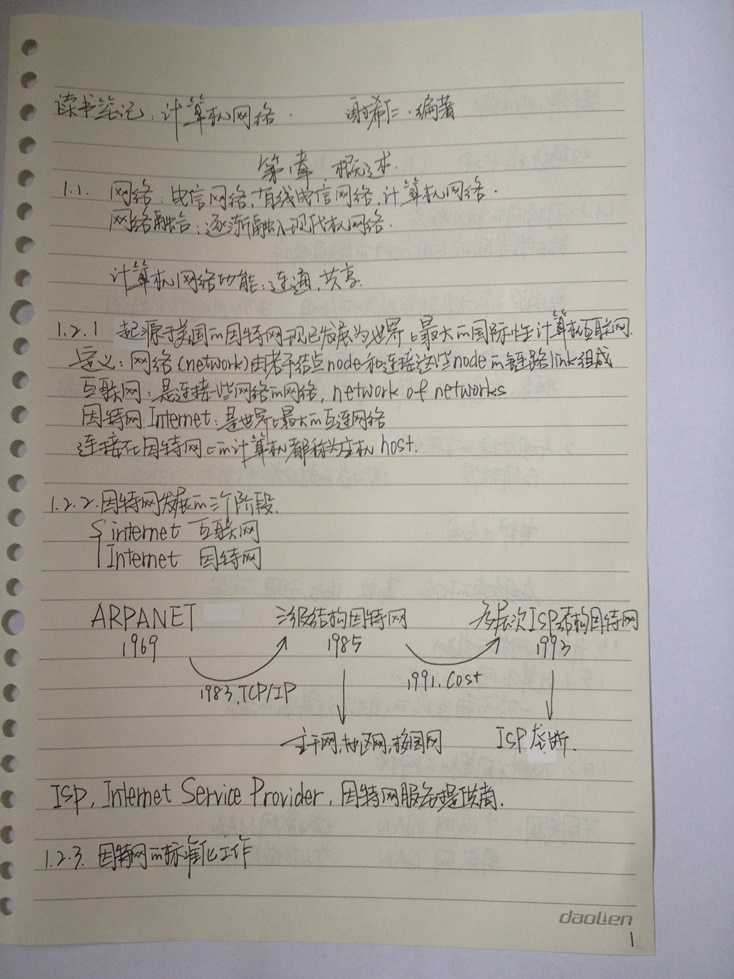 读书笔记:计算机网络. 谢希仁·编著
第1章.概述.
1.1. 网络:电信网络,有线电信网络,计算机网络.
网络融合:逐渐融入现代机网络.
计算机网络功能:连通,共享.
1.2.1 起源于美国的因特网现已发展为世界上最大的国际性计算机互联网.
定义:网络(network)由若干结点node和连接这些node的链路link组成
互联网:是连接一些网络的网络, network of networks
因特网Internet:是世界上最大的互连网络
连接在因特网上的计算机都称为主机host.
1.2.2.因特网发展的三个阶段.
internet 互联网
Internet 因特网
ARPANET 三级结构因特网 多层次ISP结构因特网
1969 1985 1993
1983.TCP/IP 1991.Cost
主干网,地区网,校园网 ISP垄断.
ISP, Internet Service Provider, 因特网服务提供商.
1.2.3. 因特网的标准化工作
daolien
1